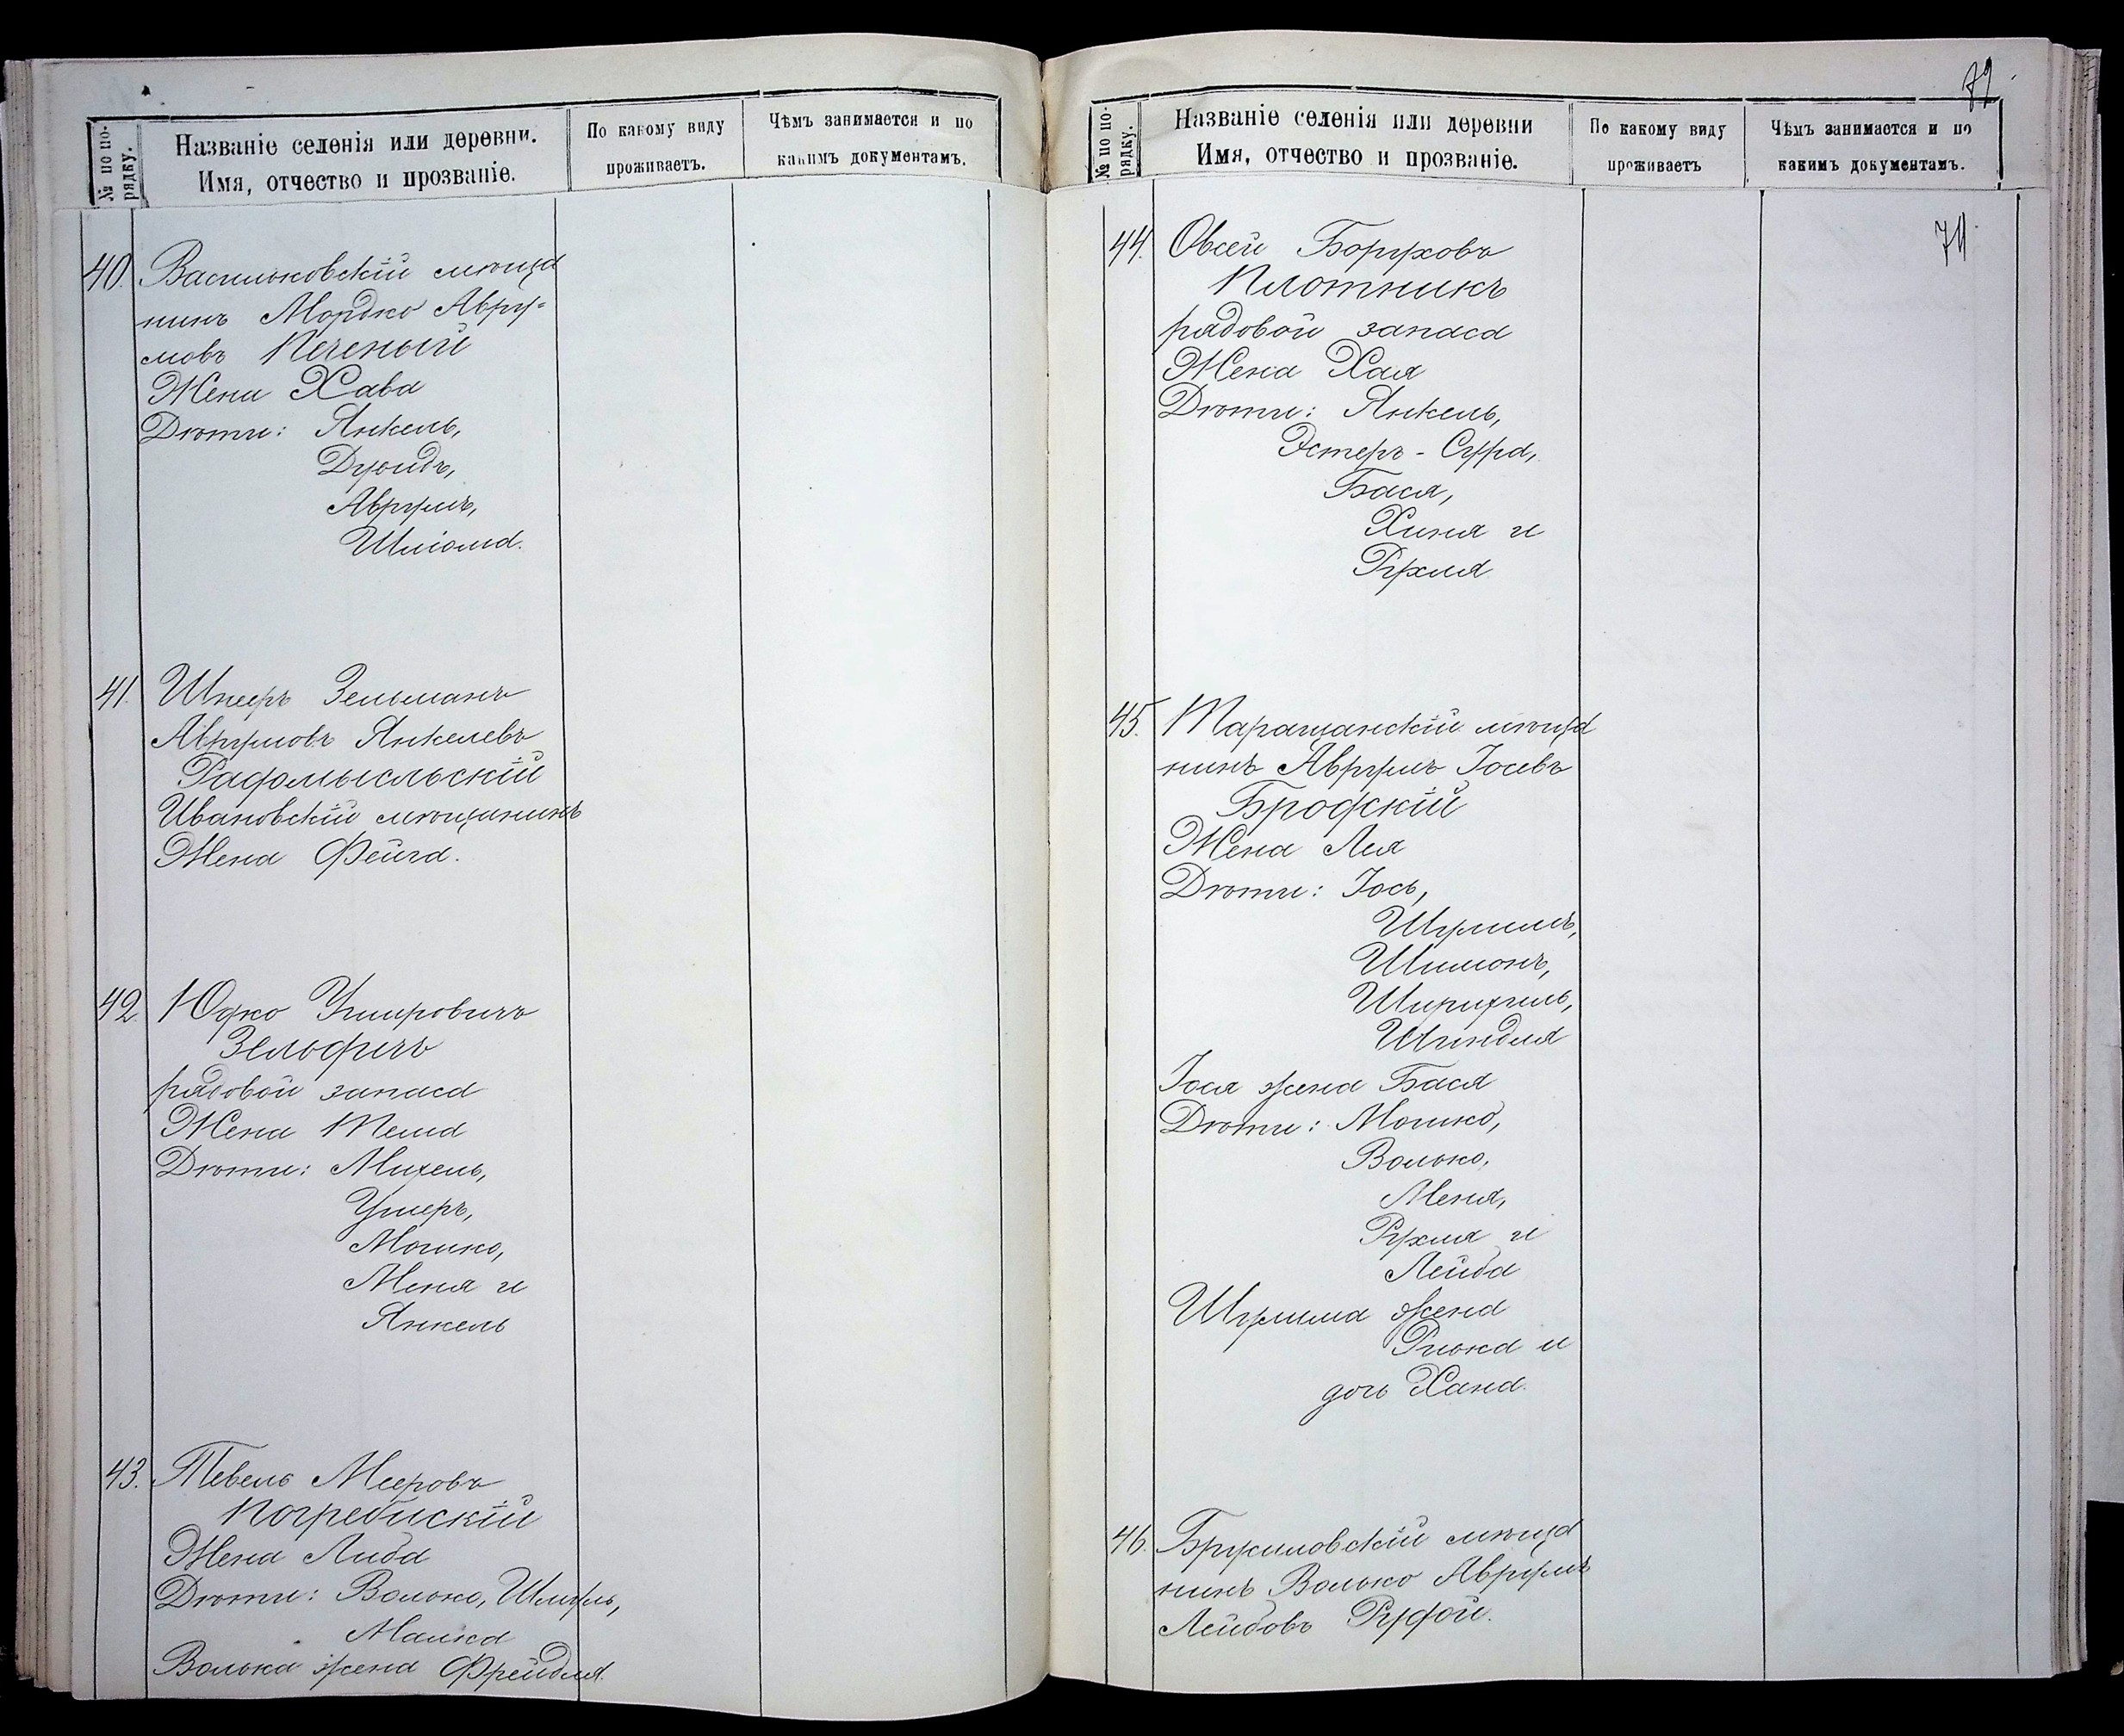 № по по-
рядку.
Названіе селенія или деревни.
Имя, отчество и прозваніе.
По какому виду
проживаетъ.
Чѣмъ занимается и по
какимъ документамъ.
40. Васильковскій мѣща
нинъ Мордко Авру-
мовъ Печеный
Жена Хава
Дѣти: Янкель,
Дувидъ,
Аврумъ,
Шліома.
41. Шнееръ Зельманъ
Аврумовъ Янкелевъ
Радомысльскій
Ивановскій мѣщанинъ
Жена Фейга.
42. Юдко Ушировичъ
Зельдичъ
рядовой запаса
Жена
Дѣти: Михель,
Ушеръ,
Мошко,
Меня и
Янкель
43. Тевель Мееровъ
Погребискій
Жена Либа
Дѣти: Волько, Шмуль,
Малка
Волька жена Фрейдля.
72
№ по по-
рядку.
Названіе селенія или деревни
Имя, отчество и прозваніе.
По какому виду
проживаетъ
Чѣмъ занимается и по
какимъ документамъ.
71.
44. Овсей Боруховъ
Плотникъ
рядовой запаса
Жена Хая
Дѣти: Янкель,
Эстеръ - Сура,
Бася,
Хиня и
Рухля
45. Таращанскій мѣща
нинъ Аврумъ Іосевъ
Бродскій
Жена Лея
Дѣти: Іось,
Шулимъ,
Шимонъ,
Шиндля
Іося жена Бася
Дѣти: Мошко,
Волько,
Меня,
Рухля и
Лейба
Шулима жена
Ривка и
дочь Хана.
46. Брусиловскій мѣща
нинъ Волько Аврумъ
Лейбовъ Рудой.